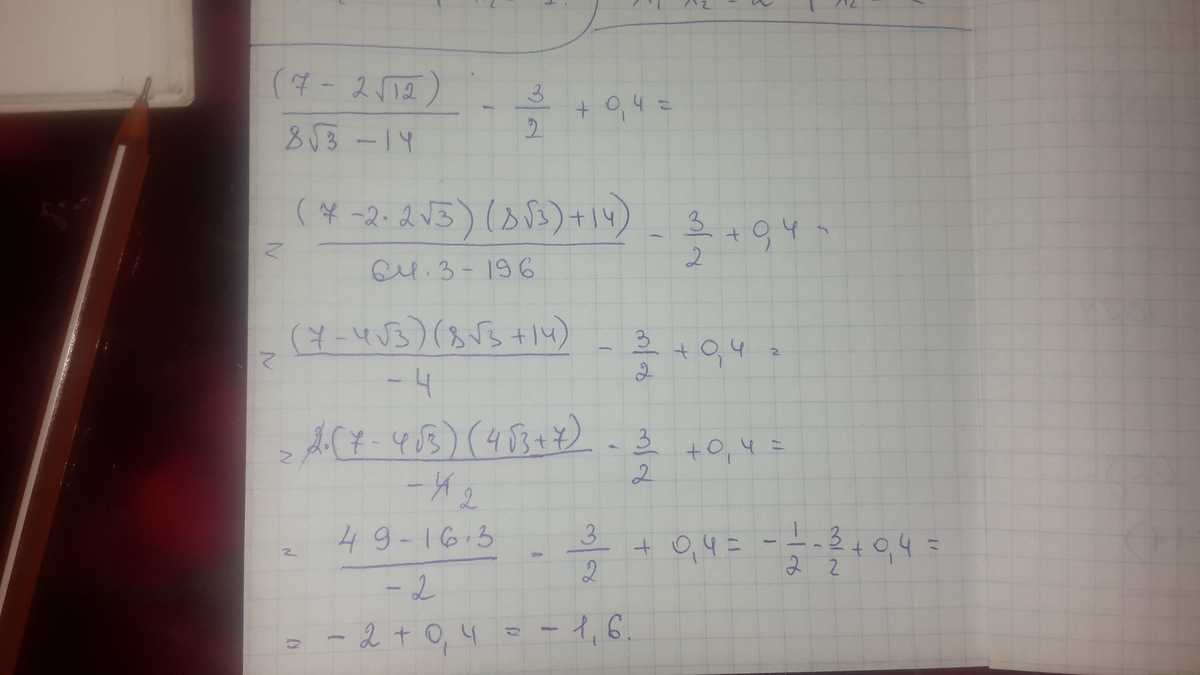 (7 - 2√12) / (8√3 - 14) - 3/2 + 0,4 =
= (7 - 2·2√3)(8√3)+14) / (64·3 - 196) - 3/2 + 0,4 =
= (7 - 4√3)(8√3 + 14) / (-4) - 3/2 + 0,4 =
= 2·(7 - 4√3)(4√3 + 7) / (-4 2) - 3/2 + 0,4 =
= (49 - 16·3) / (-2) - 3/2 + 0,4 = - 1/2 - 3/2 + 0,4 =
= - 2 + 0,4 = - 1,6.